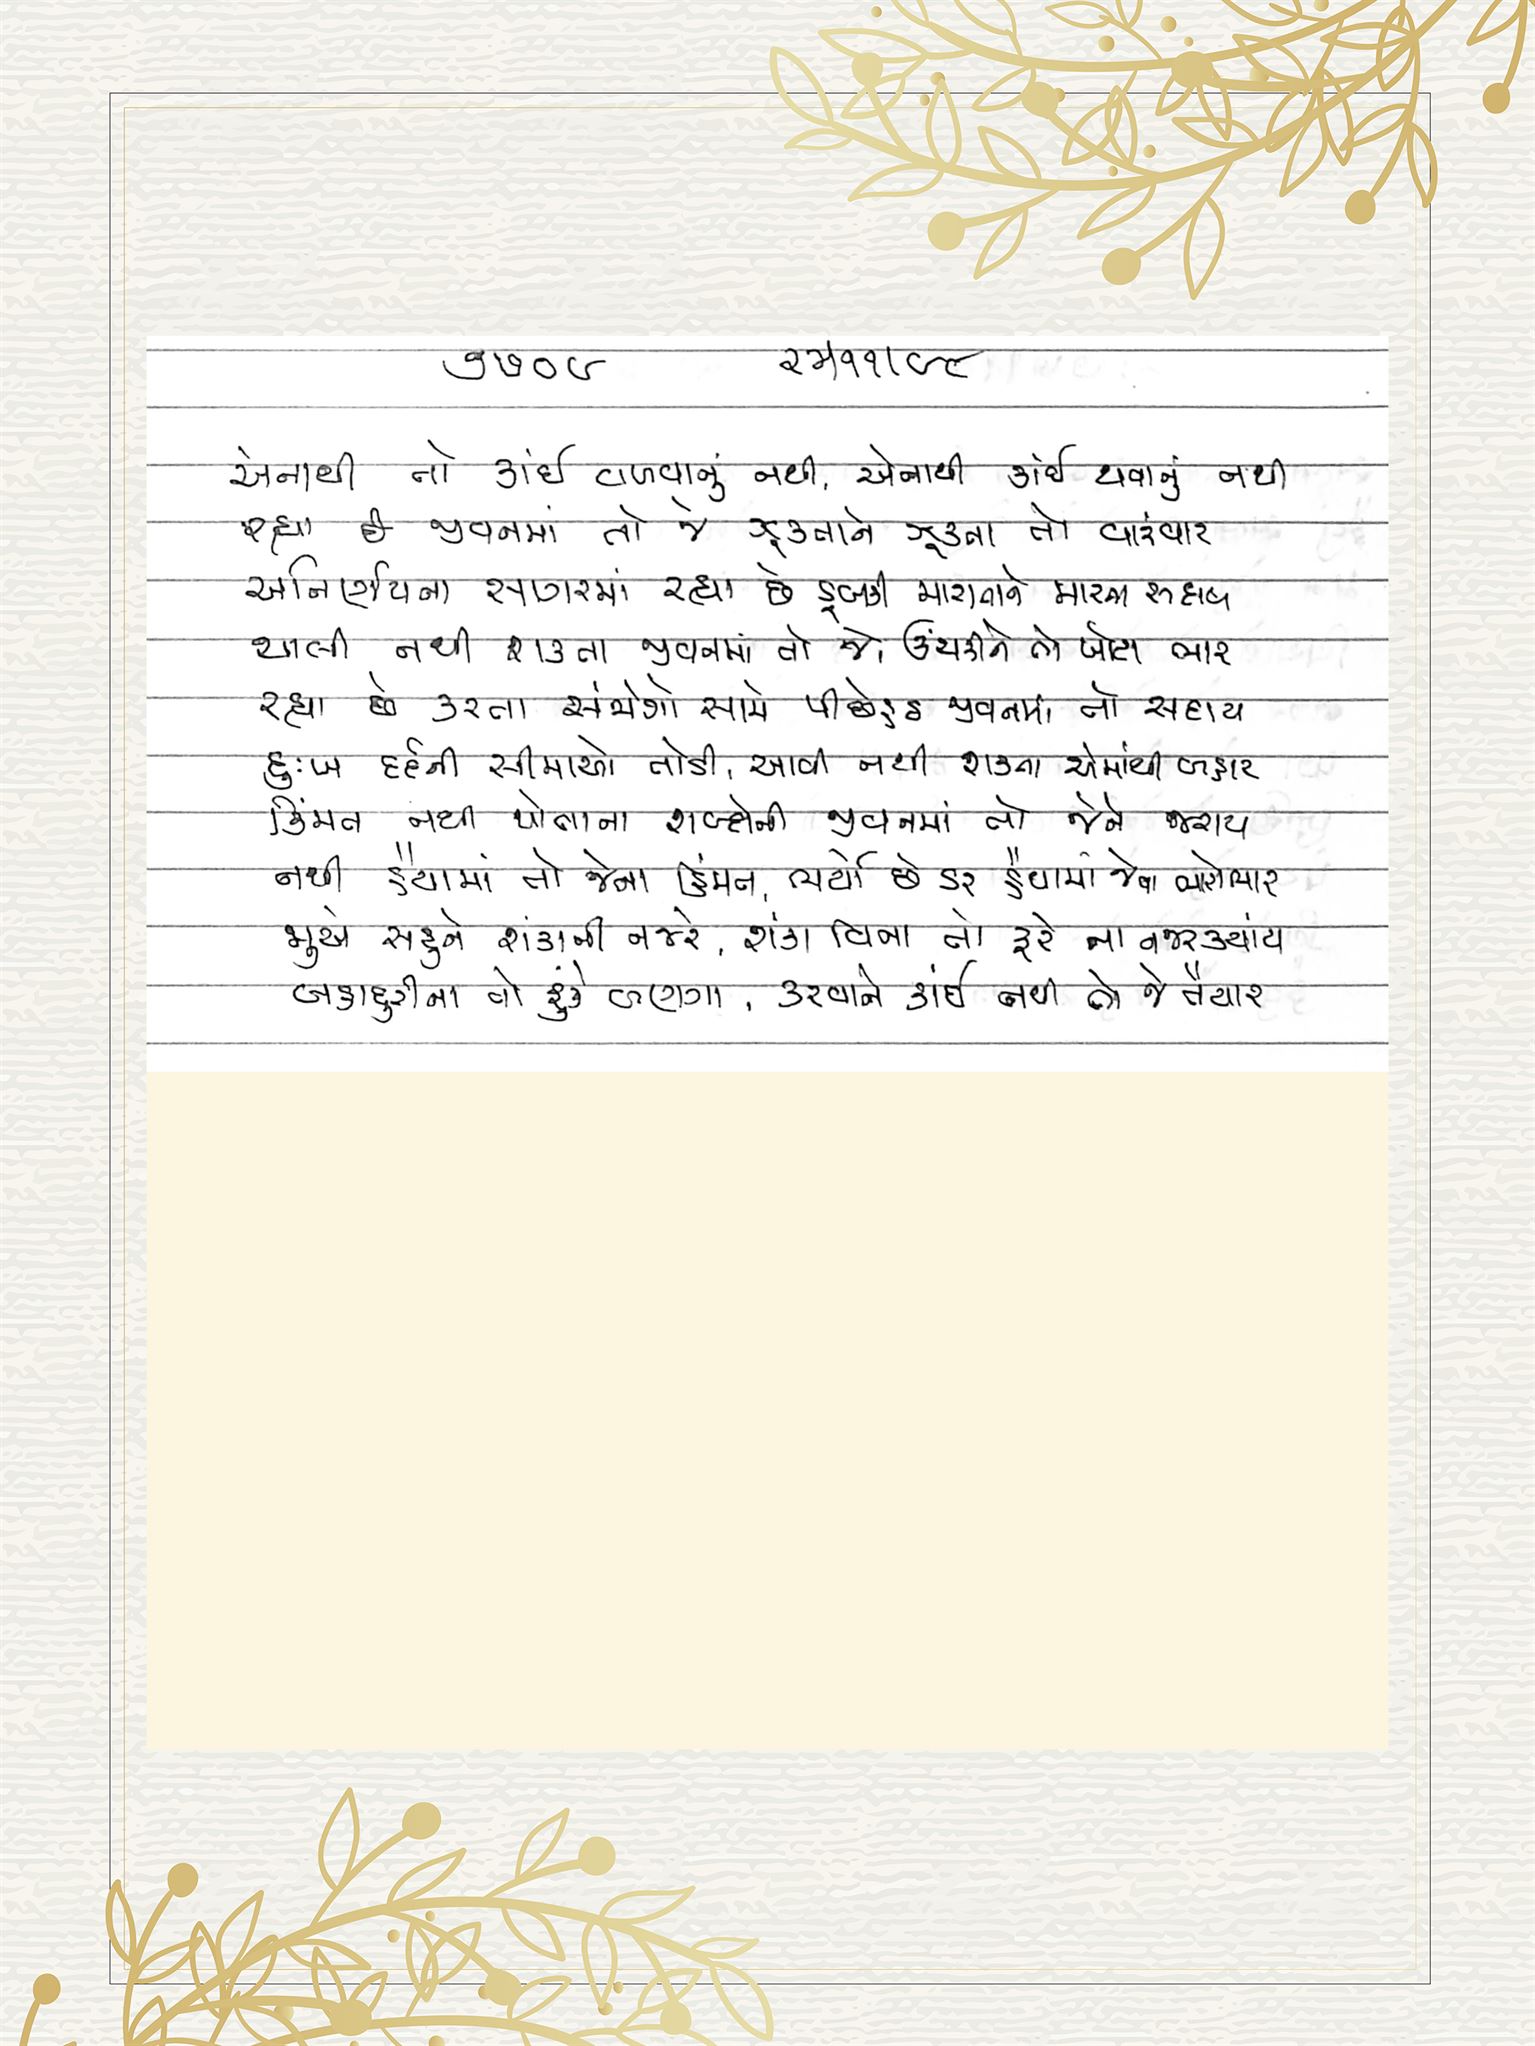 ૭૭૦૮
એનાથી તો કાંઈ વળવાનું નથી, એનાથી કાંઈ થવાનું નથી
રહ્યા છે જીવનમાં તો જે ઝૂકતાને ઝૂકતા તો વારંવાર
અનિર્ણયના સાગરમાં રહ્યા છે ડૂબકી મારતાને મારતા સદાય
ચાલી નથી શકતા જીવનમાં તો જે, ઉંચકીને તો ખોટા ભાર
રહ્યા છે કરતા સંજોગો સામે પીછેહઠ જીવનમાં તો સદાય
દુઃખ દર્દની સીમાઓ તોડી, આવી નથી શકતા એમાંથી બહાર
કિંમત નથી પોતાના શબ્દોની જીવનમાં તો જેને જરાય
નથી હૈયામાં તો જેના હિંમત, ભર્યો છે ડર હૈયામાં જેના ભારોભાર
જુએ સહુને શંકાની નજરે, શંકા વિના તો ફરે ના નજર ક્યાંય
બહાદુરીના તો ફુંકે બણગા, કરવાને કાંઈ નથી તો જે તૈયાર